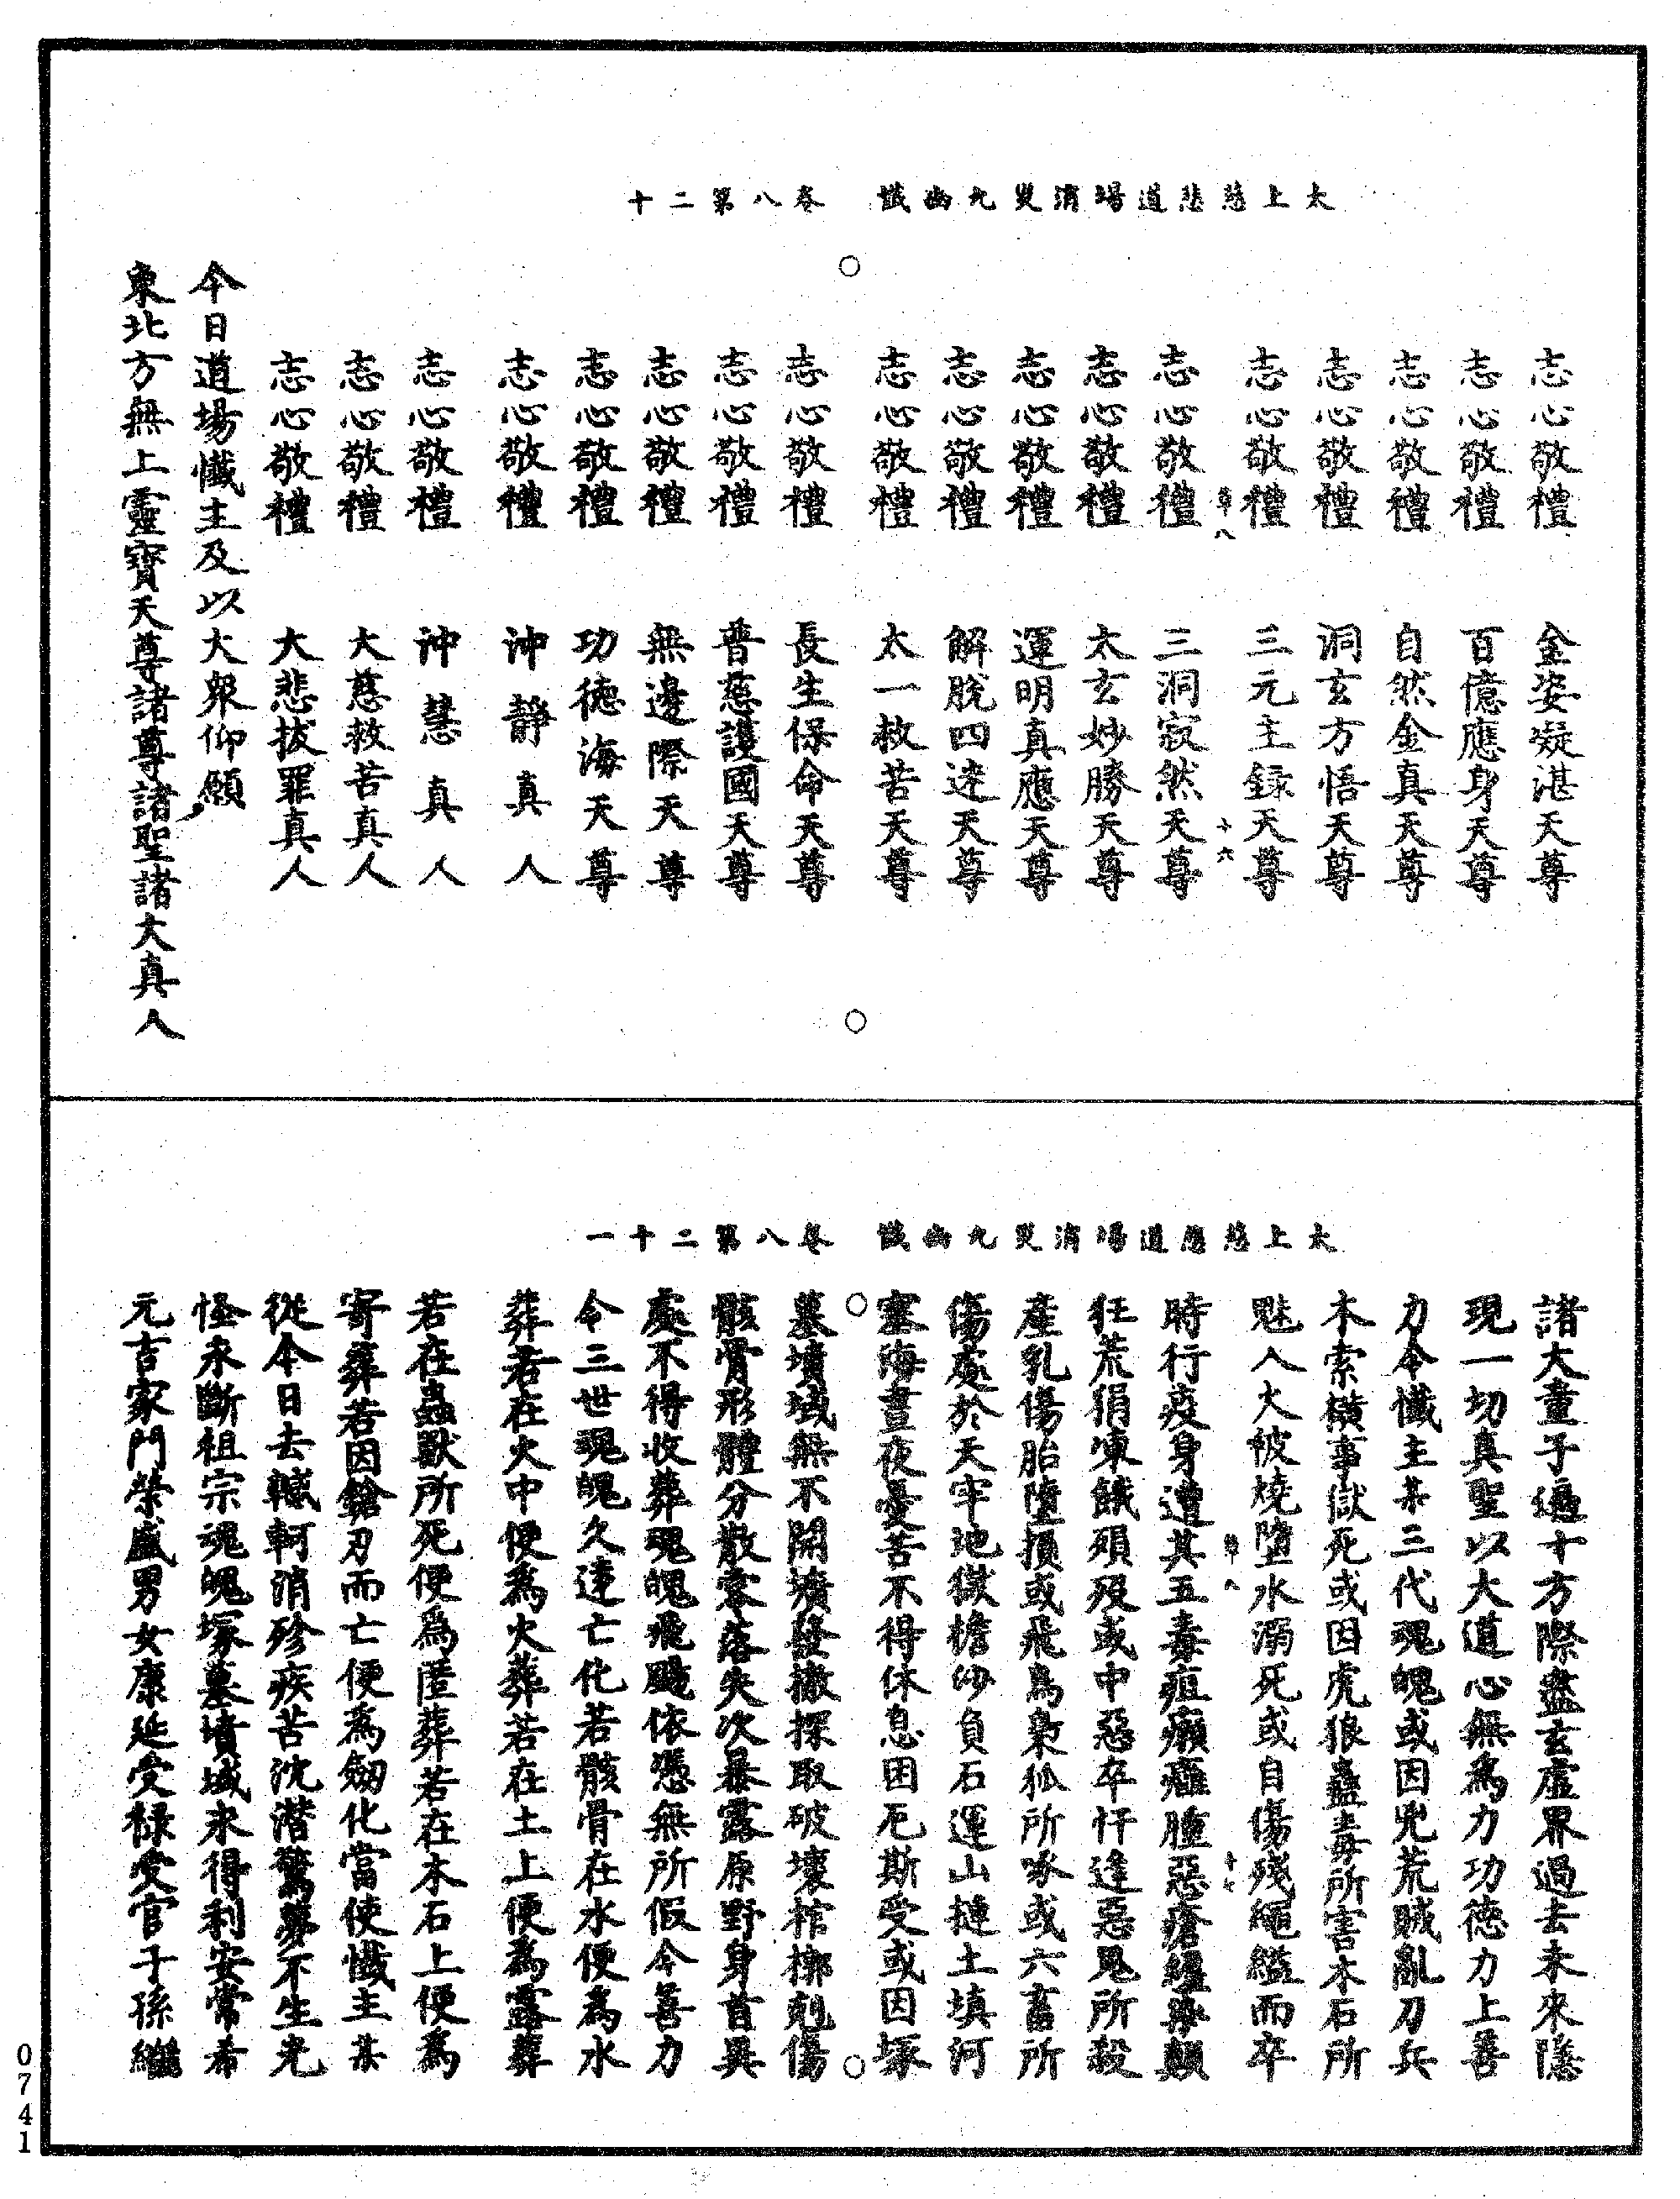 太上慈悲道場消災九幽懺　卷八第二十
志心敬禮　金姿凝湛天尊
志心敬禮　百億應身天尊
志心敬禮　自然金真天尊
志心敬禮　洞玄方悟天尊
志心敬禮　三元主錄天尊
八　十六
志心敬禮　三洞寂然天尊
志心敬禮　太玄妙勝天尊
志心敬禮　運明真應天尊
志心敬禮　解脫四迷天尊
志心敬禮　太一救苦天尊
志心敬禮　長生保命天尊
志心敬禮　普慈護國天尊
志心敬禮　無邊際天尊
志心敬禮　功德海天尊
志心敬禮　沖靜真人
志心敬禮　沖慧真人
志心敬禮　大慈救苦真人
志心敬禮　大悲拔罪真人
今日道場懺主及以大眾仰願
東北方無上靈寶天尊諸尊諸聖諸大真人
太上慈悲道場消災九幽懺　卷八第二十一
諸大童子遍十方際盡玄虛界過去未來隱
現一切真聖以大道心無為力功德力上善
力今懺主某三代魂魄或因兇荒賊亂刀兵
木索橫事獄死或因虎狼蠱毒所害木石所
魅入火被燒墮水溺死或自傷殘繩縊而卒
八　十七
時行疫身遭其五毒疽癩癰腫惡瘡纏身顛
狂荒狷凍餓殞歿或中惡卒忤逢惡鬼所殺
產乳傷胎墮損或飛鳥梟狐所啄或六畜所
傷處於天牢地獄檐沙負石運山撻土填河
塞海晝夜憂苦不得休息困厄斯受或因塚
墓墳域無不開壙發撤探取破壞棺槨剋傷
骸骨形體分散零落失次暴露原野身首異
處不得收葬魂魄飛颺依憑無所假令善力
令三世魂魄久違亡化若骸骨在水便為水
葬若在火中便為火葬若在土上便為露葬
若在蟲獸所死便為匿葬若在木石上便為
寄葬若因鎗刃而亡便為劒化當使懺主某
從今日去轗軻消殄疾苦沈潛驚夢不生光
怪永斷祖宗魂魄塚墓墳域永得利安常希
元吉家門榮盛男女康延受祿受官子孫繼
0741